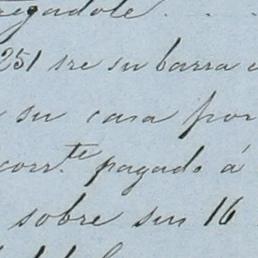 regadole . . .
251 sre su barra
su casa por
corr.te pagado á
sobre sus 16